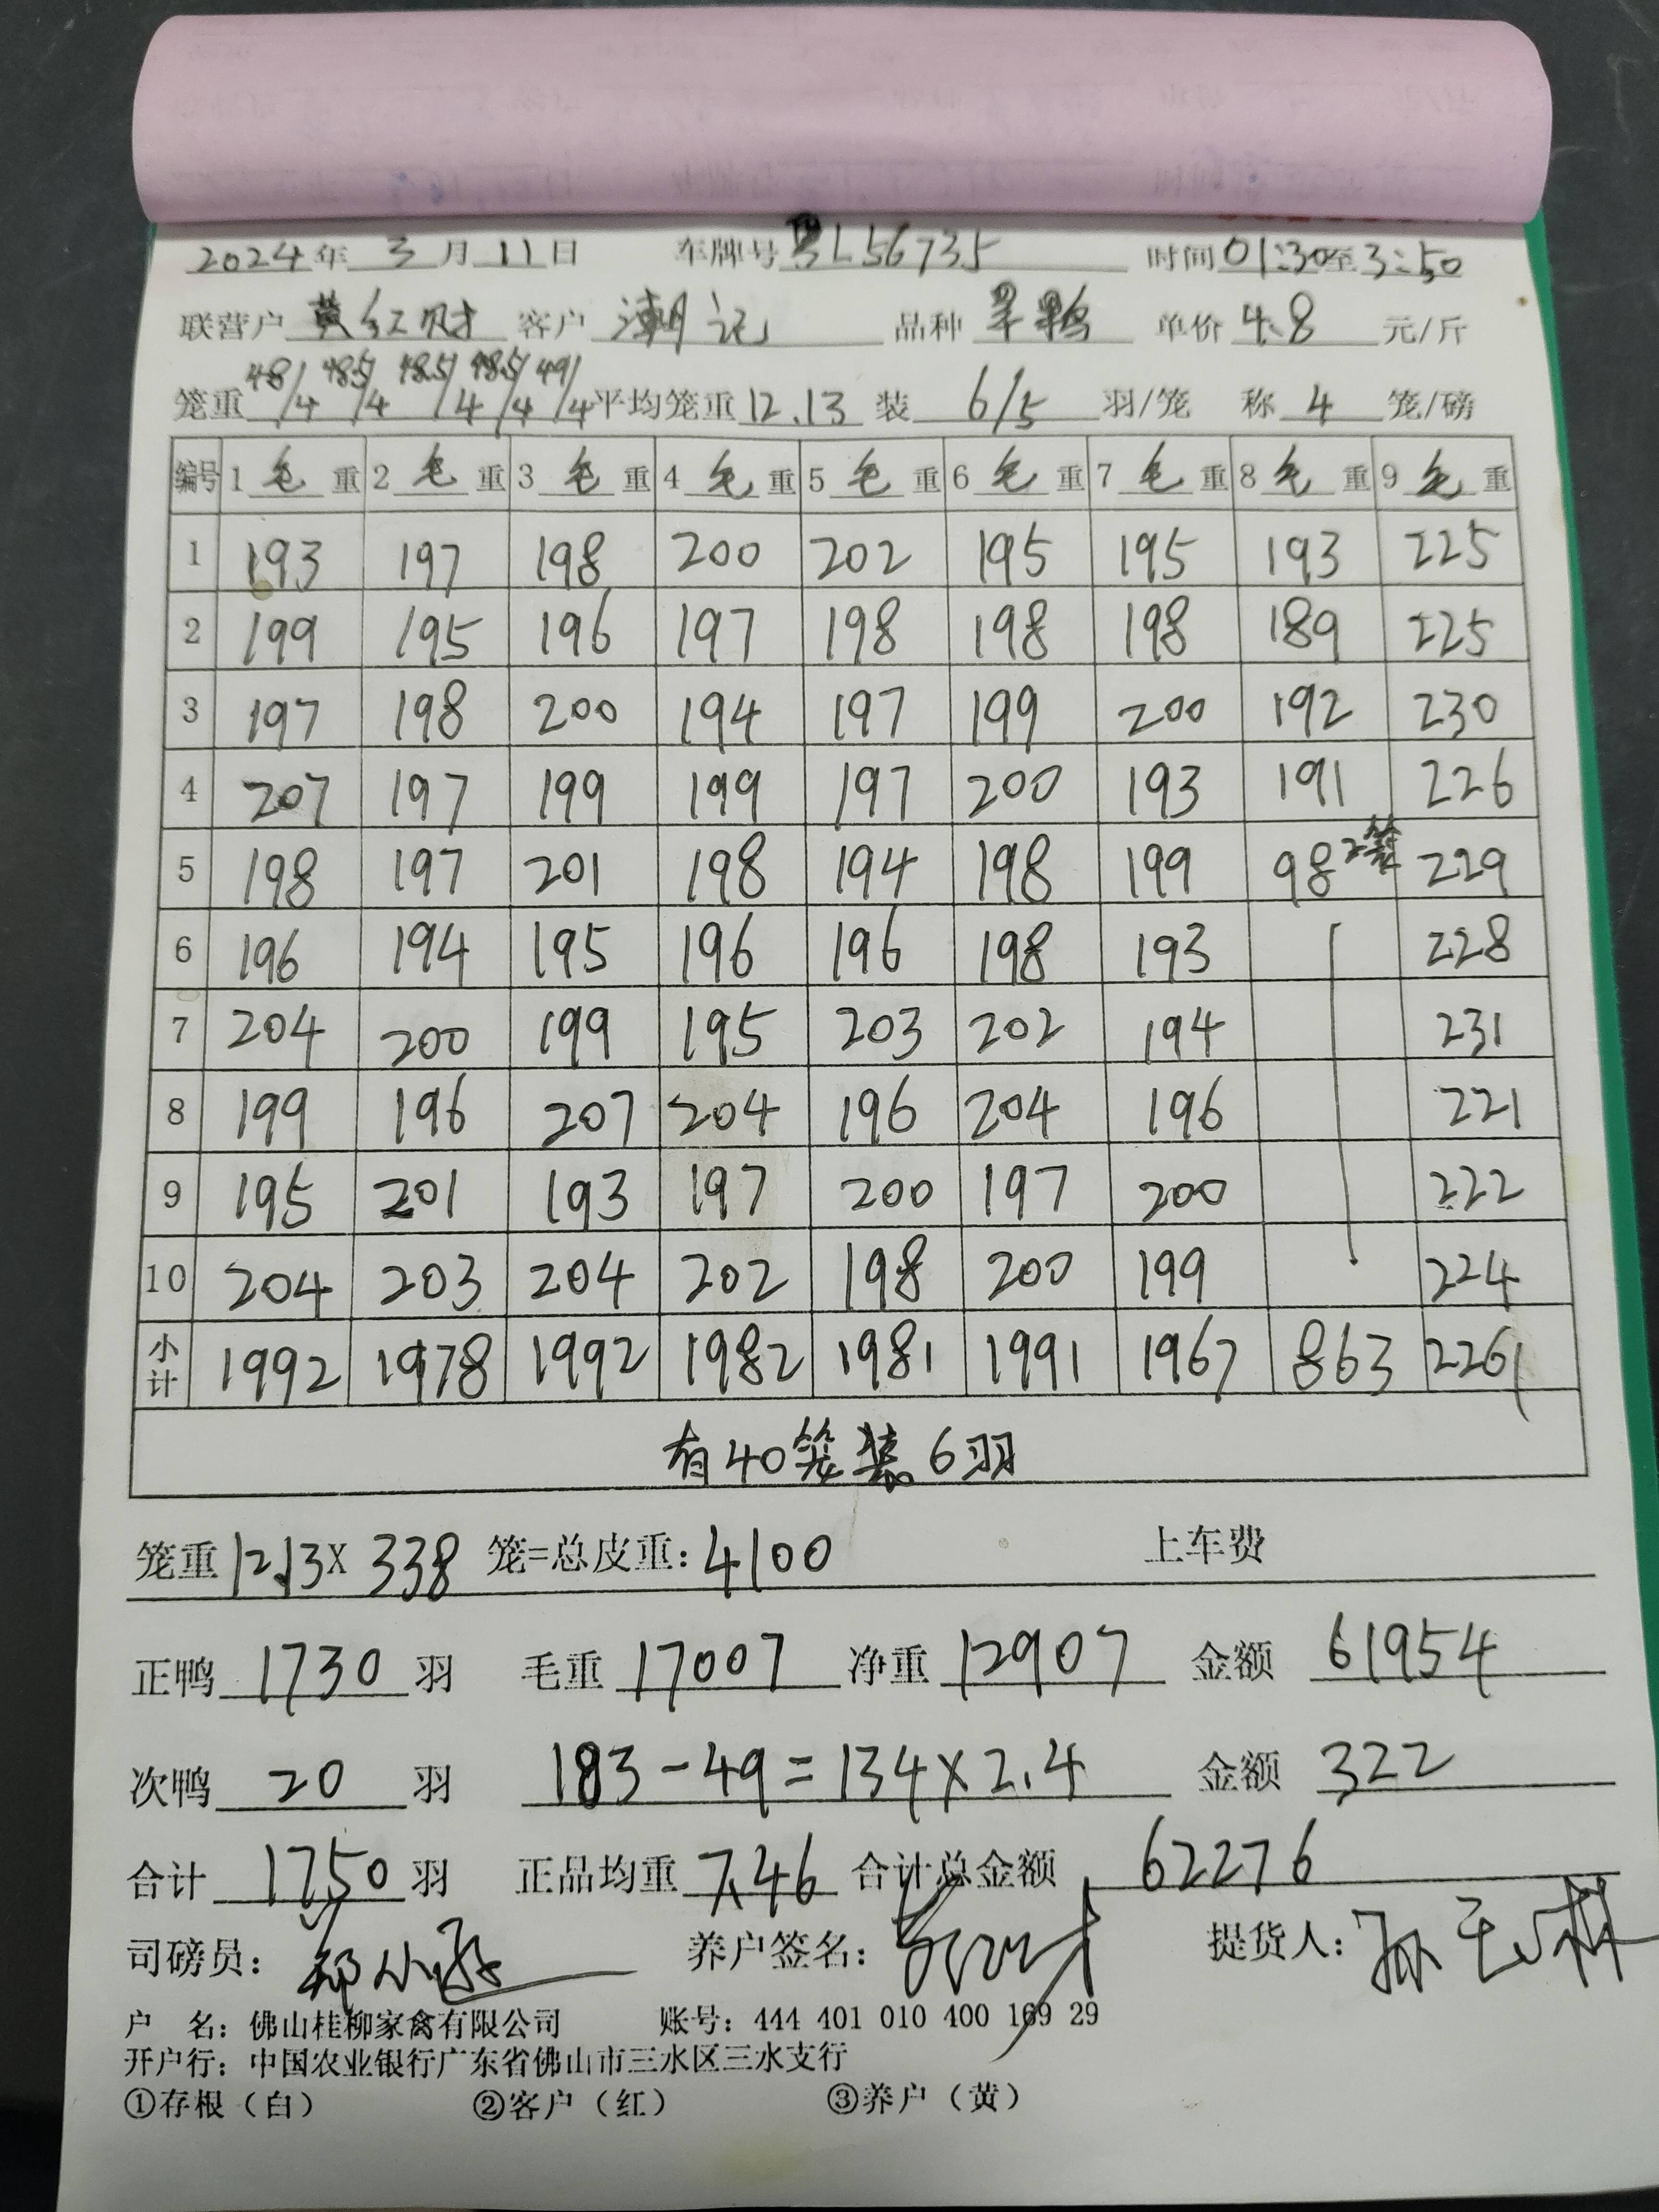 2024年 3 月 11 日 车牌号 粤L56735 时间 01:30至3:50
联营户 黄红财 客户 潮记 品种 单价 4.8 元/斤
笼重 48/4 48.5/4 48.5/4 48.5/4 49/4 平均笼重 12.13 装 6/5 羽/笼 称 4 笼/磅
编号 1 毛 重 2 毛 重 3 毛 重 4 毛 重 5 毛 重 6 毛 重 7 毛 重 8 毛 重 9 毛 重
1 193 197 198 200 202 195 195 193 225
2 199 195 196 197 198 198 198 189 225
3 197 198 200 194 197 199 200 192 230
4 207 197 199 199 197 200 193 191 226
5 198 197 201 198 194 198 199 98 2笼 229
6 196 194 195 196 196 198 193 228
7 204 200 199 195 203 202 194 231
8 199 196 207 204 196 204 196 221
9 195 201 193 197 200 197 200 222
10 204 203 204 202 198 200 199 224
小计 1992 1978 1992 1982 1981 1991 1967 863 2261
有40笼装6羽
笼重 12.13X 338 笼=总皮重: 4100 上车费
正鸭 1730 羽 毛重 17007 净重 12907 金额 61954
次鸭 20 羽 183-49=134×2.4 金额 322
合计 1750 羽 正品均重 7.46 合计总金额 62276
司磅员: 养户签名: 提货人:
户 名: 佛山桂柳家禽有限公司 账号: 444 401 010 400 169 29
开户行: 中国农业银行广东省佛山市三水区三水支行
①存根（白） ②客户（红） ③养户（黄）